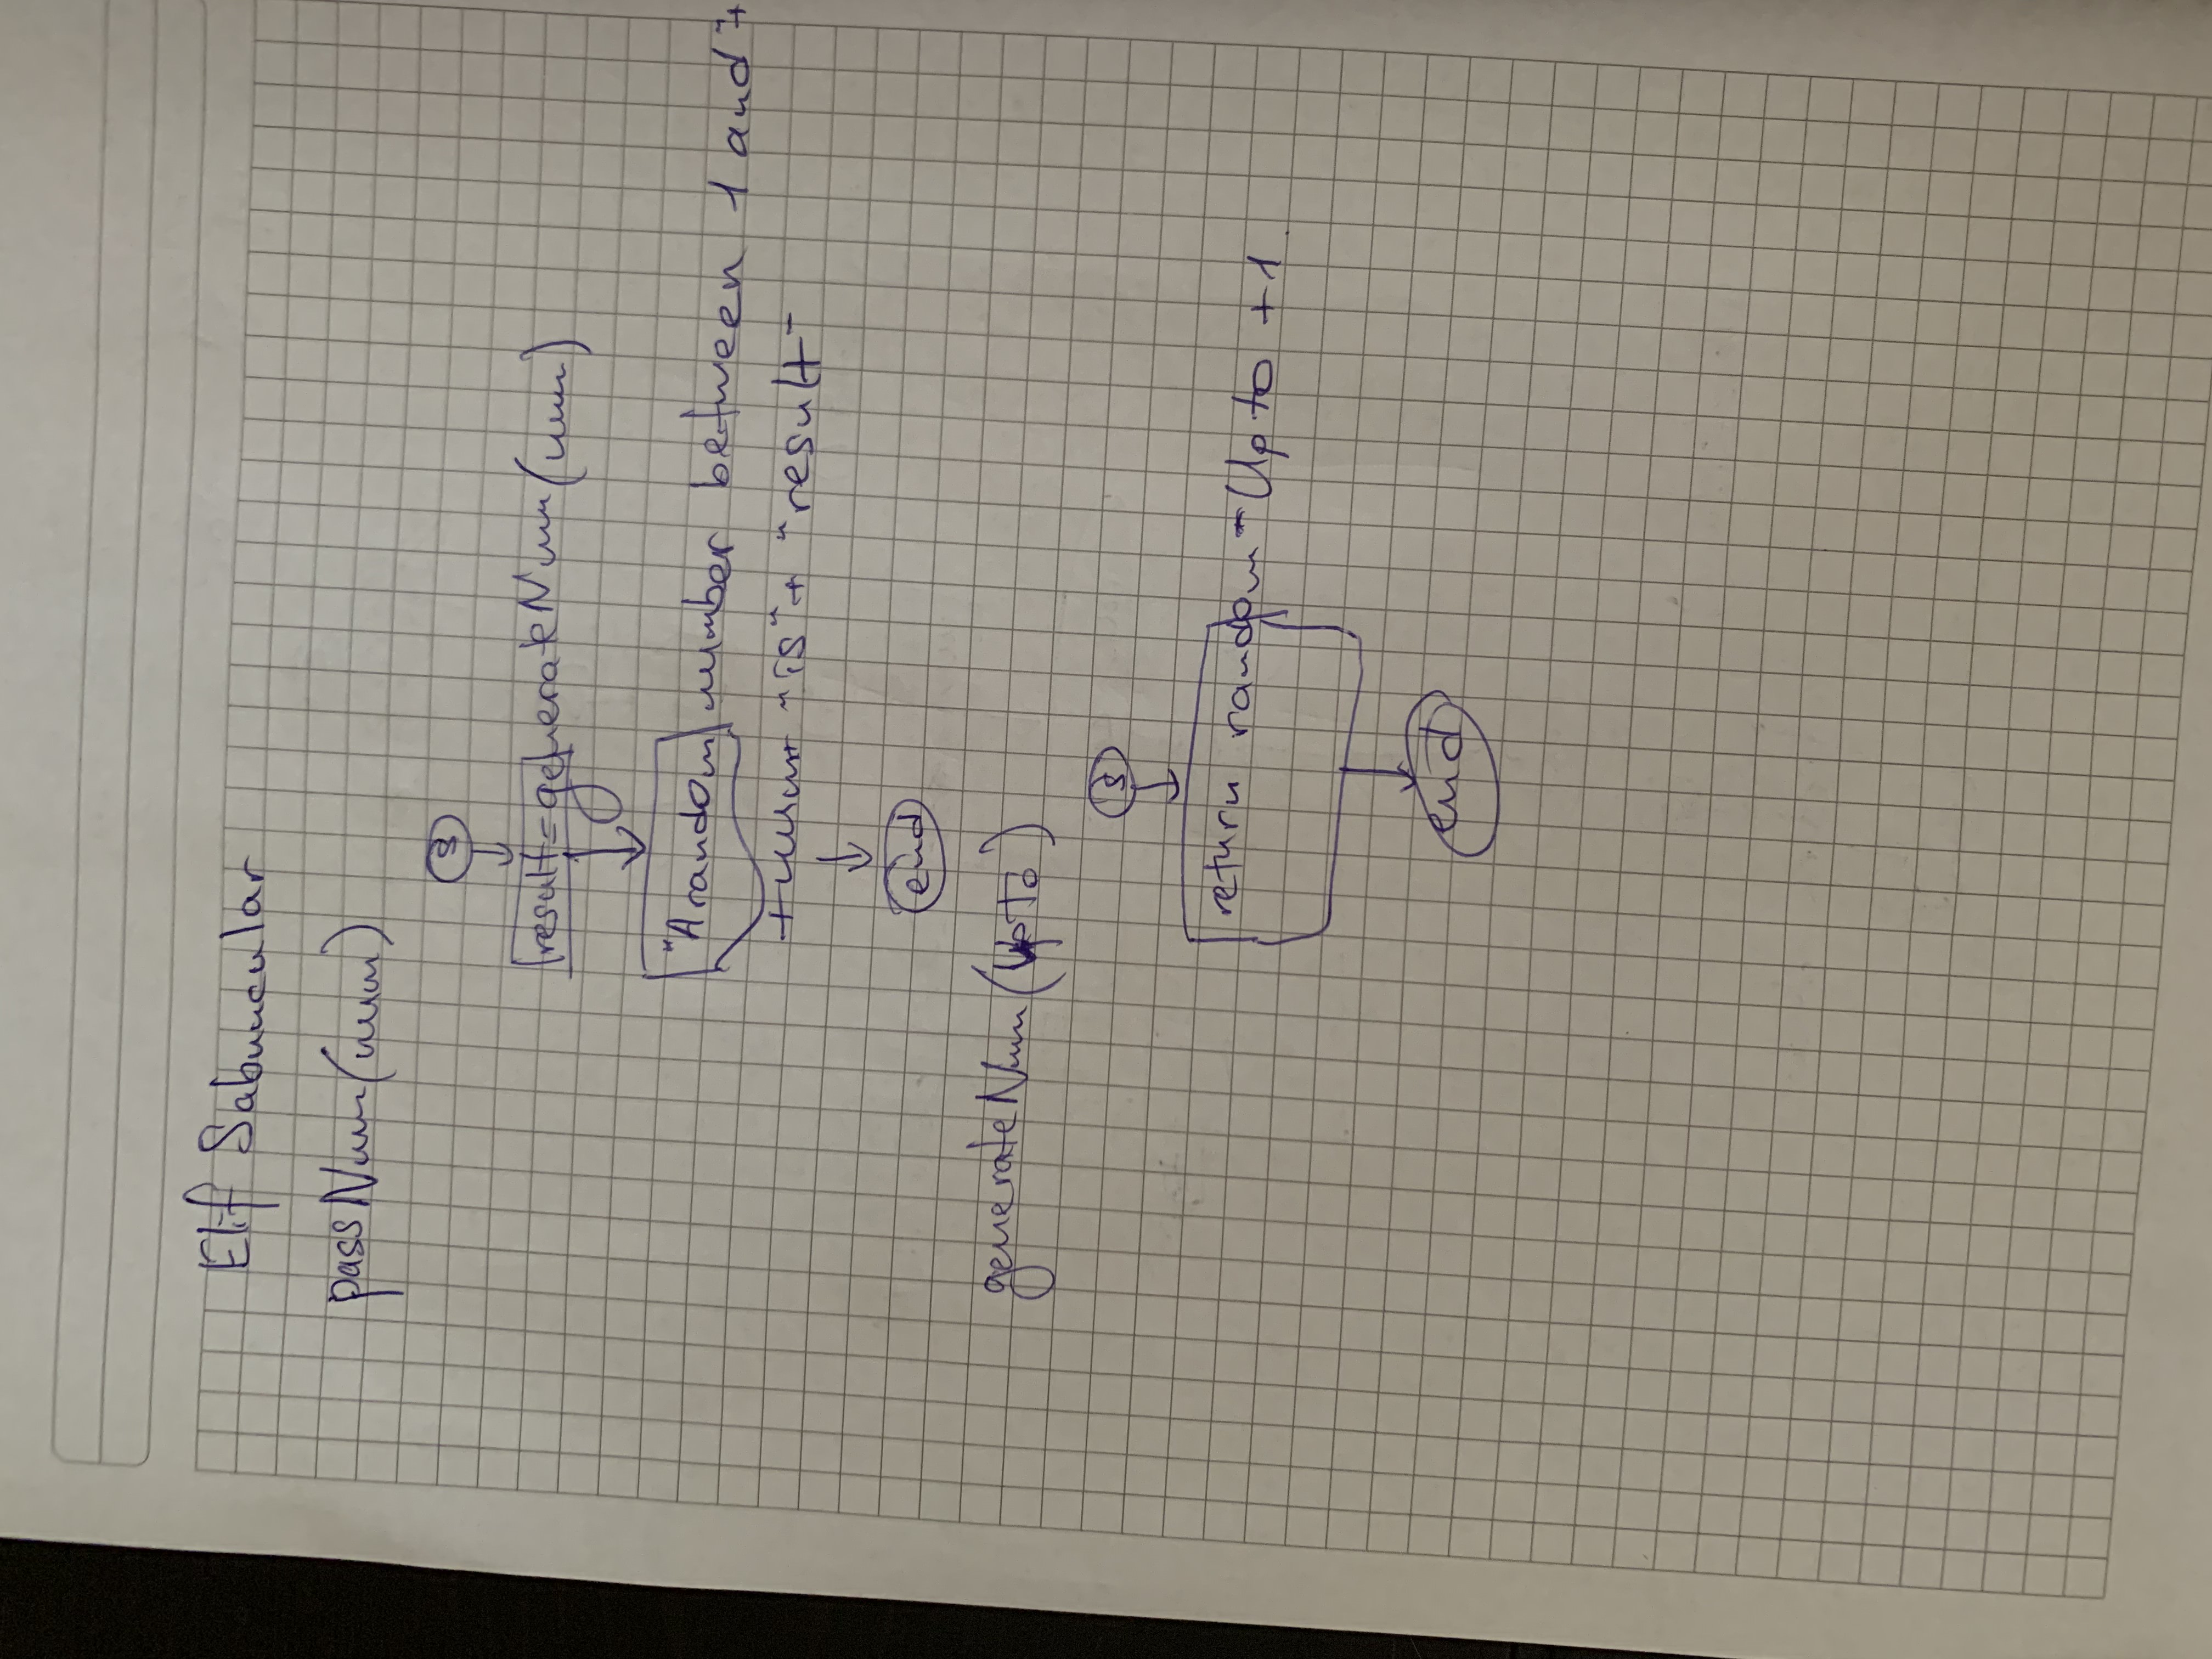 Elif Sabuncular
passNum(num)
S
result=generateNum(num)
"A random number between 1 and"+
+num+ "is"+ "result"
end
generateNum(UpTo)
S
return random*Up to +1.
end